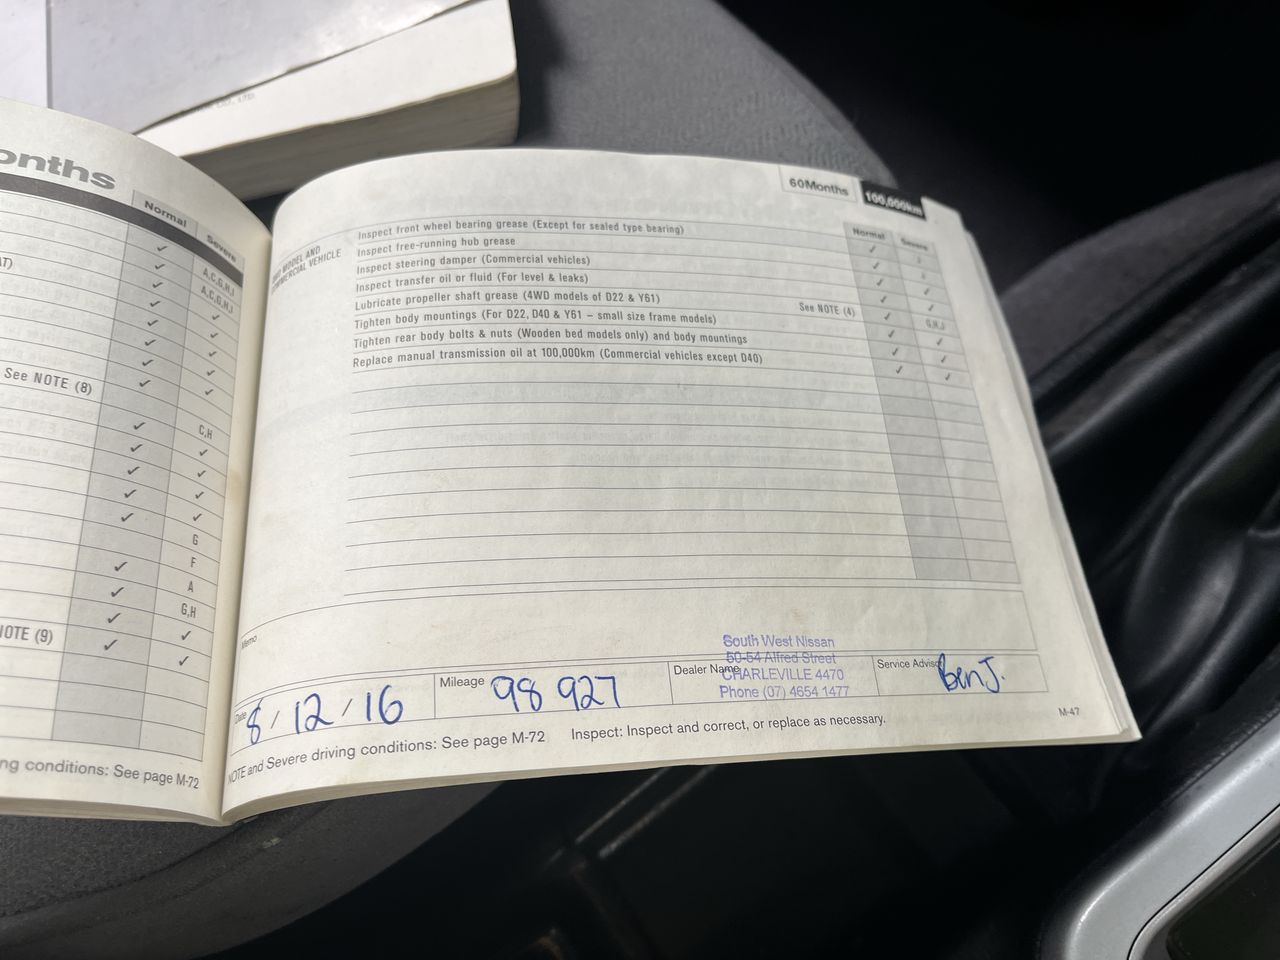 onths
Normal
Severe
A,C,G,H,I
A,C,G,H,I
See NOTE (8)
C,H
G
F
A
G,H
NOTE (9)
ng conditions: See page M-72
60Months
100,000km
Normal
MODEL AND
COMMERCIAL VEHICLE
Inspect front wheel bearing grease (Except for sealed type bearing)
Inspect free-running hub grease
Inspect steering damper (Commercial vehicles)
Inspect transfer oil or fluid (For level & leaks)
Lubricate propeller shaft grease (4WD models of D22 & Y61)
See NOTE (4)
G,H,J
Tighten body mountings (For D22, D40 & Y61 – small size frame models)
Tighten rear body bolts & nuts (Wooden bed models only) and body mountings
Replace manual transmission oil at 100,000km (Commercial vehicles except D40)
Memo
Date 8 / 12 / 16
Mileage 98 927
Dealer Name
South West Nissan
50-54 Alfred Street
CHARLEVILLE 4470
Phone (07) 4654 1477
Service Advisor Ben J.
NOTE and Severe driving conditions: See page M-72
Inspect: Inspect and correct, or replace as necessary.
M-47